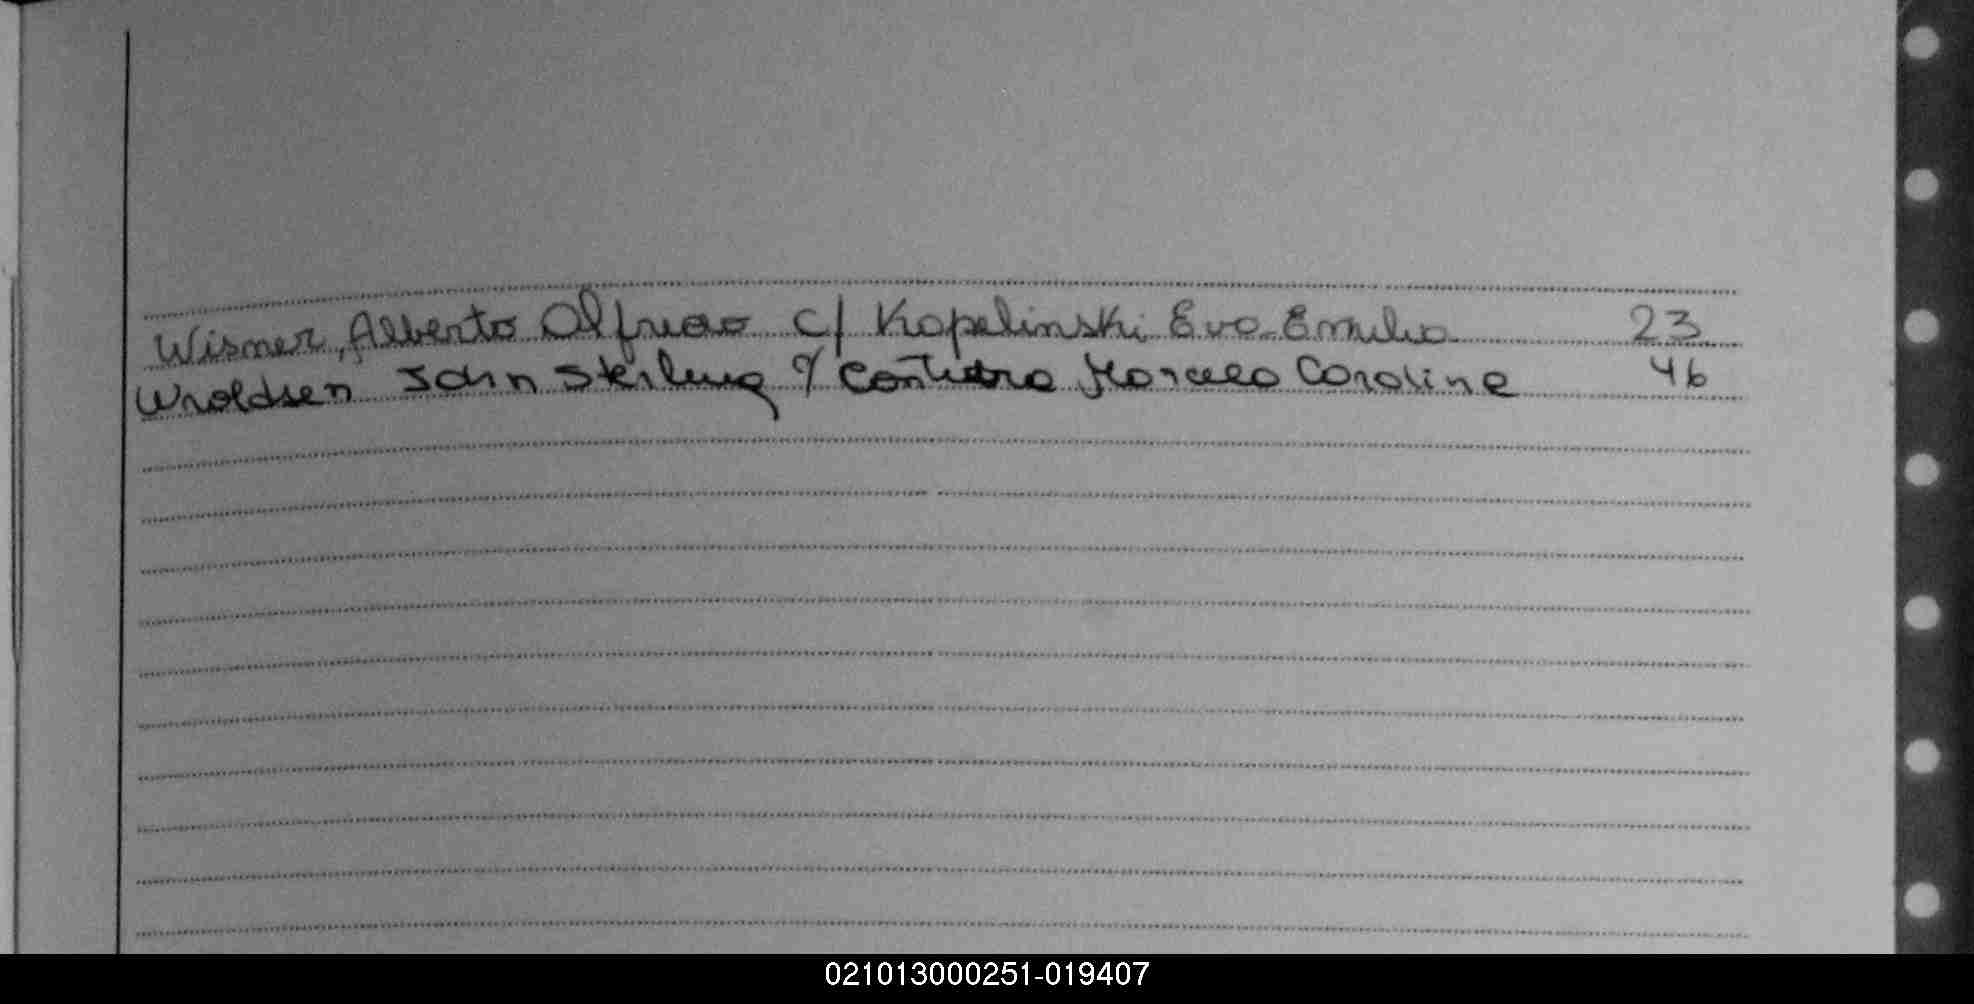 Wismer, Alberto Alfredo c/ Kopelinski Eva Emilia 23
Wroldsen John Sterling c/ Marcelo Caroline 46
021013000251-019407